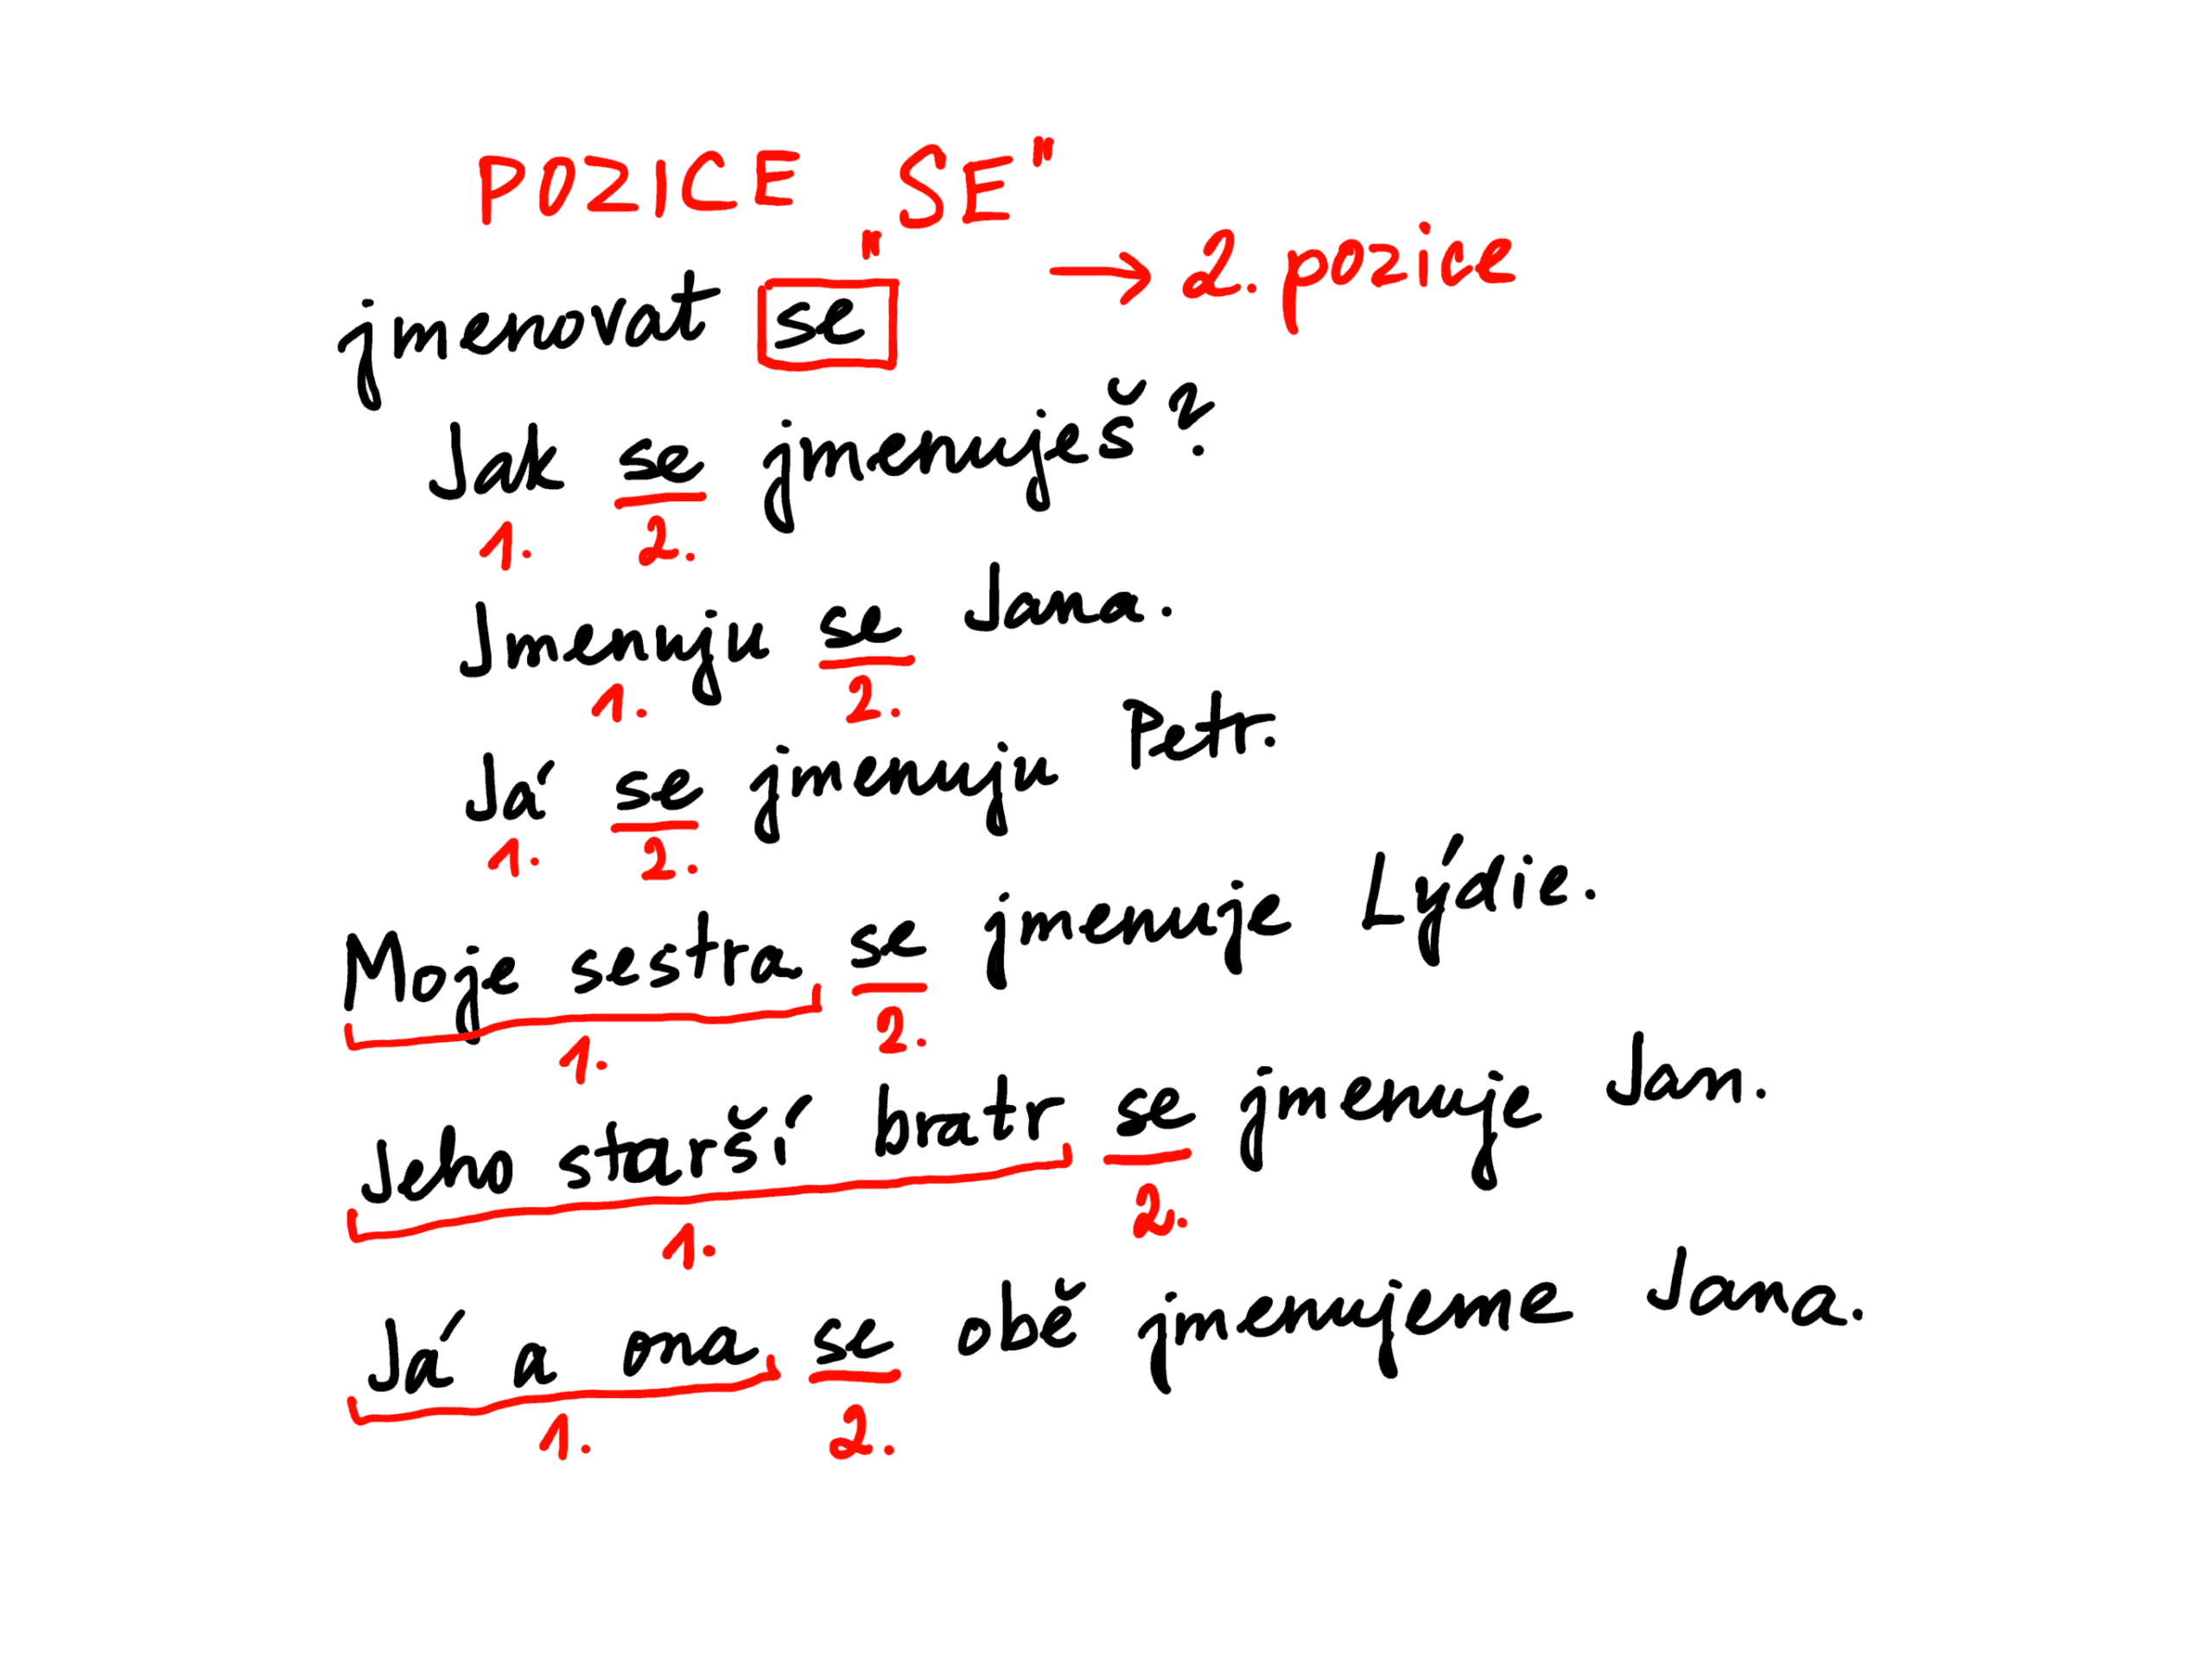 POZICE "SE"
jmenovat se → 2. pozice
Jak se jmenuješ?
1. 2.
Jmenuju se Jana.
1. 2.
Já se jmenuju Petr.
1. 2.
Moje sestra se jmenuje Lýdie.
1. 2.
Jeho starší bratr se jmenuje Jan.
1. 2.
Já a ona se obě jmenujeme Jana.
1. 2.